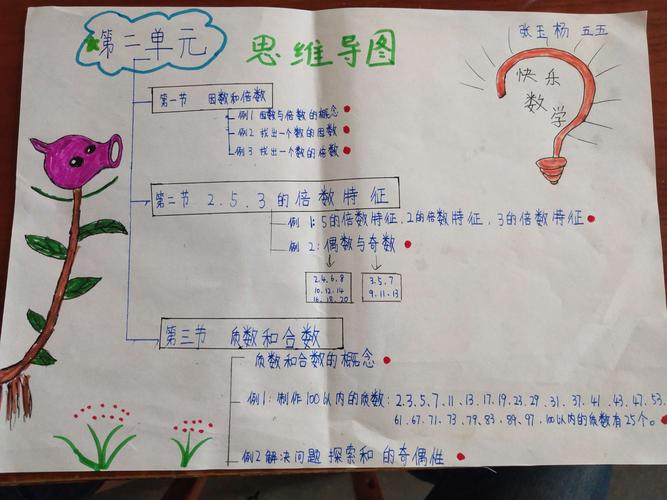 第二单元
思维导图
张玉杨 五五
快乐
数学
第一节 因数和倍数
例1 因数与倍数的概念
例2 找出一个数的因数
例3 找出一个数的倍数
第二节 2.5.3的倍数特征
例1:5的倍数特征.2的倍数特征.3的倍数特征
例2:偶数与奇数
2.4.6.8
10.12.14
16.18.20
3.5.7
9.11.13
第三节 质数和合数
质数和合数的概念
例1:制作100以内的质数:2.3.5.7.11.13.17.19.23.29.31.37.41.43.47.53.
61.67.71.73.79.83.89.97.100以内的质数有25个。
例2解决问题 探索和 的奇偶性